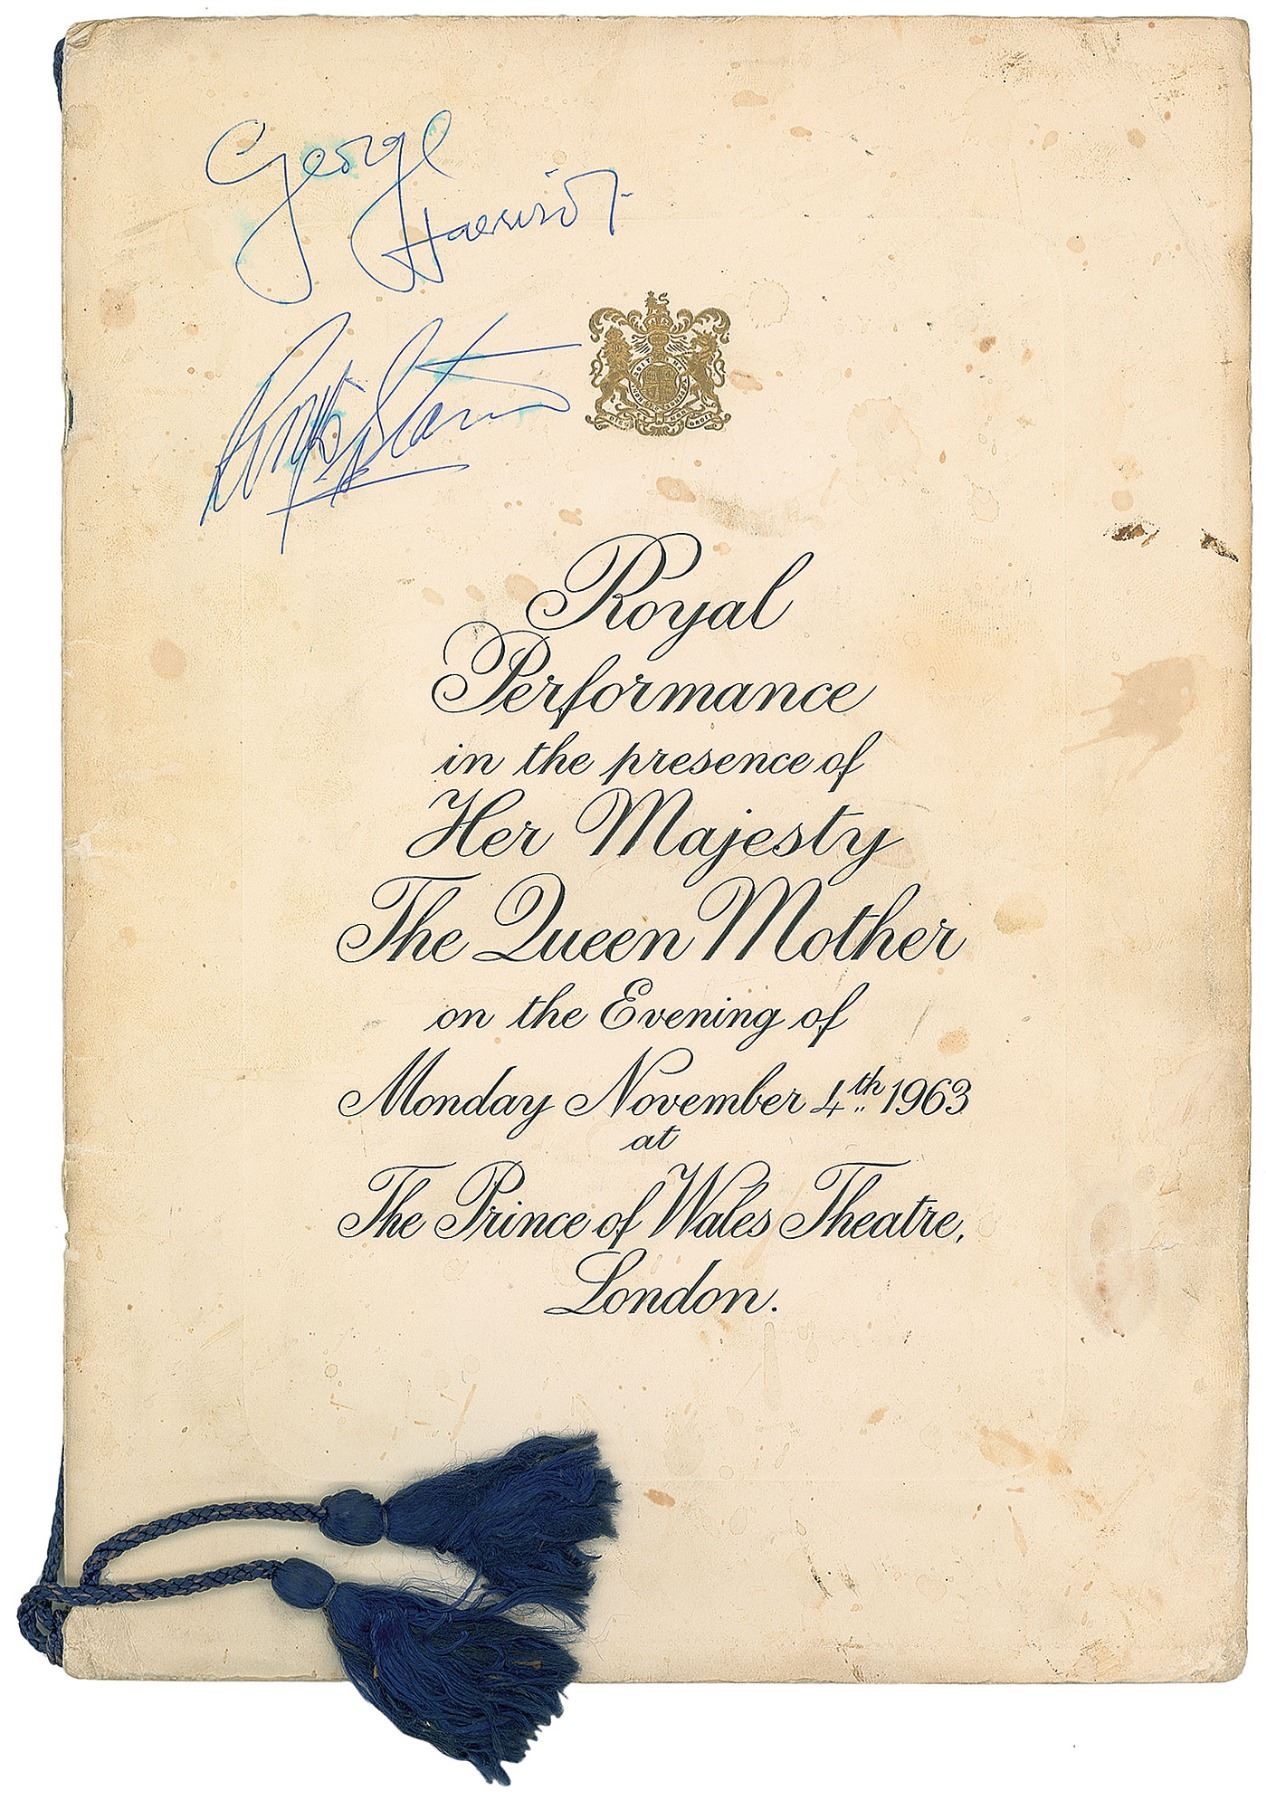 George
Harrison
Ringo Starr
Royal
Performance
in the presence of
Her Majesty
The Queen Mother
on the Evening of
Monday November 4th 1963
at
The Prince of Wales Theatre,
London.